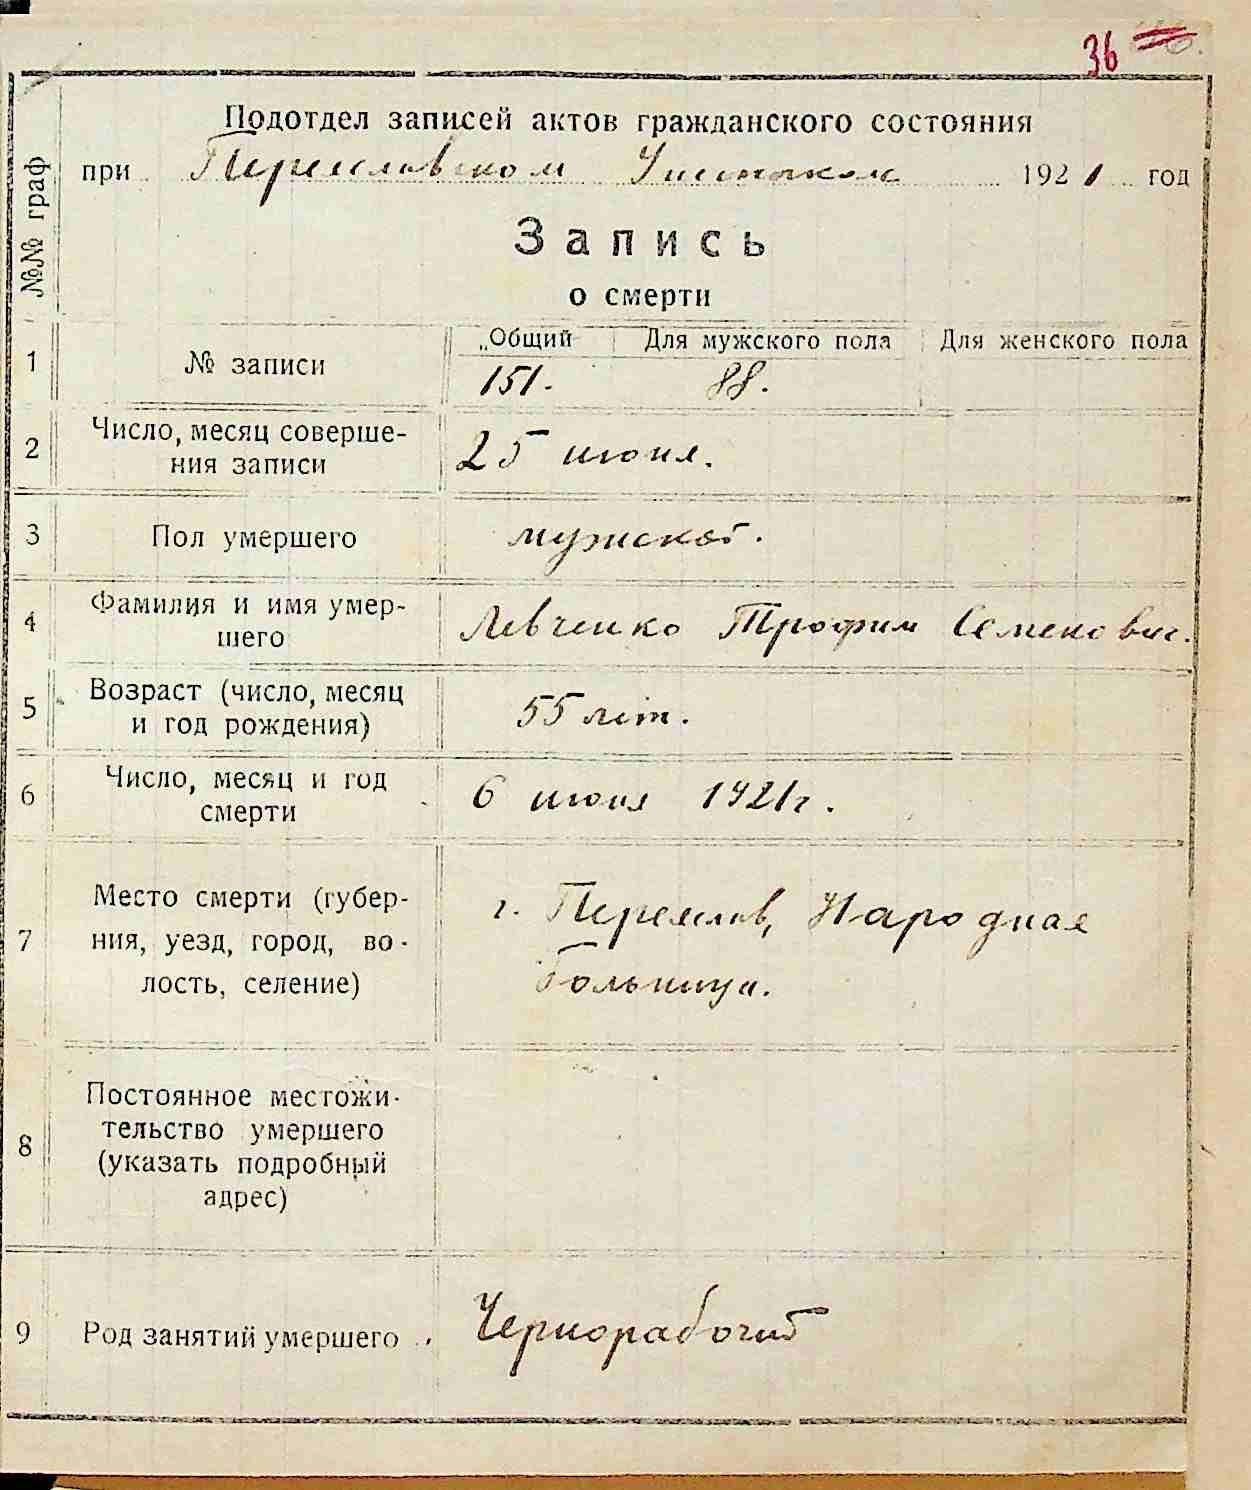 36
Подотдел записей актов гражданского состояния
при Переяславском 1921 год
№№ граф
Запись
о смерти
1 № записи Общий Для мужского пола Для женского пола
151. 88.
2 Число, месяц соверше-
ния записи 25 июня.
3 Пол умершего мужской.
4 Фамилия и имя умер-
шего Левченко Трофим Семенович.
5 Возраст (число, месяц
и год рождения) 55 лет.
6 Число, месяц и год
смерти 6 июня 1921 г.
7 Место смерти (губер-
ния, уезд, город, во-
лость, селение) г. Переяслав, Народная
больница.
8 Постоянное местожи-
тельство умершего
(указать подробный
адрес)
9 Род занятий умершего Чернорабочий